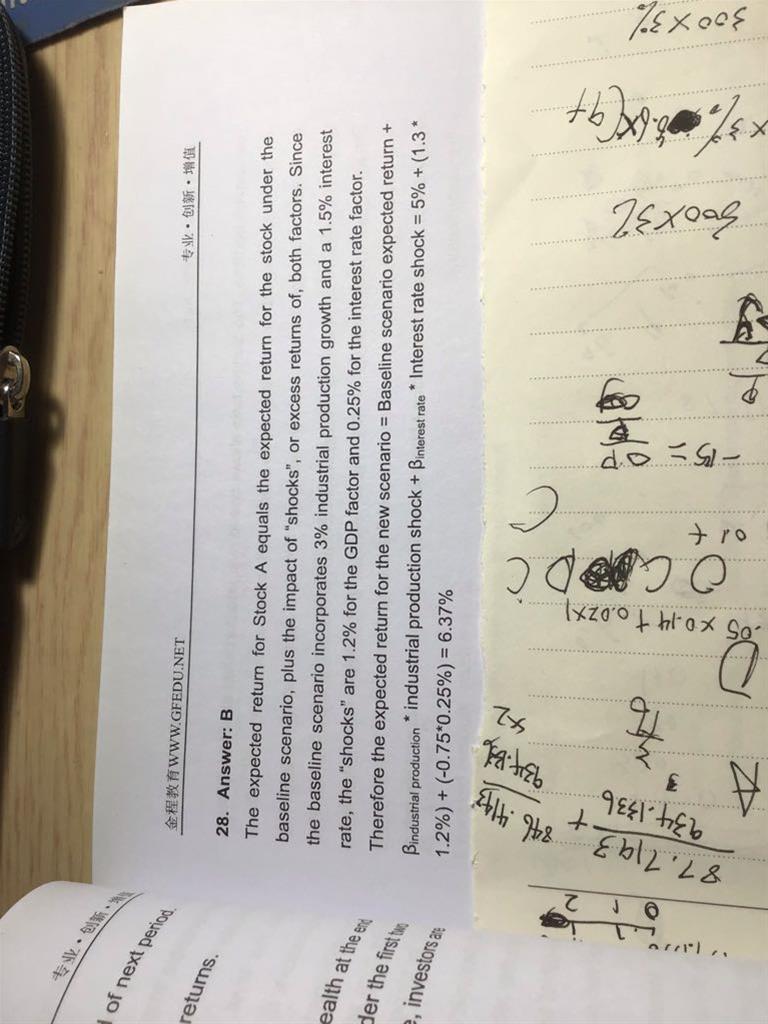 金程教育WWW.GFEDU.NET 专业·创新·增值
28. Answer: B
The expected return for Stock A equals the expected return for the stock under the
baseline scenario, plus the impact of "shocks", or excess returns of, both factors. Since
the baseline scenario incorporates 3% industrial production growth and a 1.5% interest
rate, the "shocks" are 1.2% for the GDP factor and 0.25% for the interest rate factor.
Therefore the expected return for the new scenario = Baseline scenario expected return +
βindustrial production * industrial production shock + βinterest rate * Interest rate shock = 5% + (1.3 *
1.2%) + (-0.75*0.25%) = 6.37%
专业·创新·增值
of next period.
returns.
ealth at the end
der the first two
e, investors are
300×3%
300×3%
-15 =
0.1+
.05 ×0.14 + 0.02×1
D
A
C
×2
934.1336
846.4193
87.7193
+
0 1 2